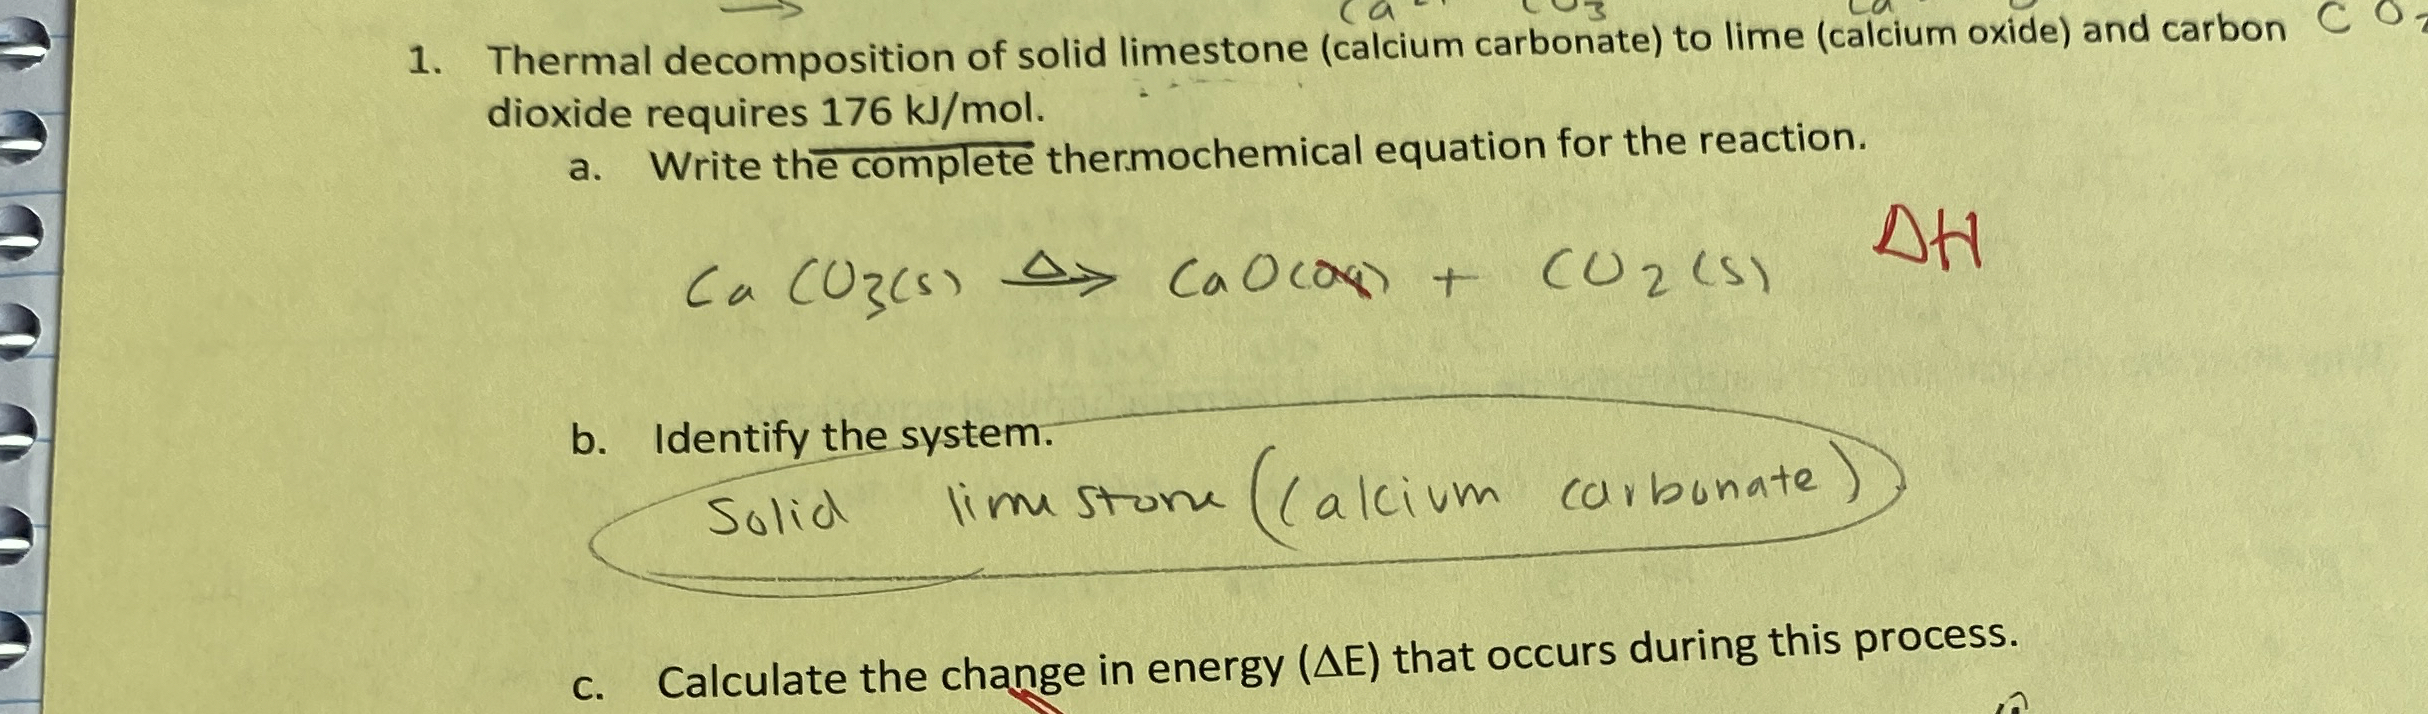 1. Thermal decomposition of solid limestone (calcium carbonate) to lime (calcium oxide) and carbon CO₂
dioxide requires 176 kJ/mol.
a. Write the complete thermochemical equation for the reaction.
CaCO₃(s) Δ→ CaO(aq) + CO₂(s) ΔH
b. Identify the system.
Solid limestone (Calcium carbonate)
c. Calculate the change in energy (ΔE) that occurs during this process.